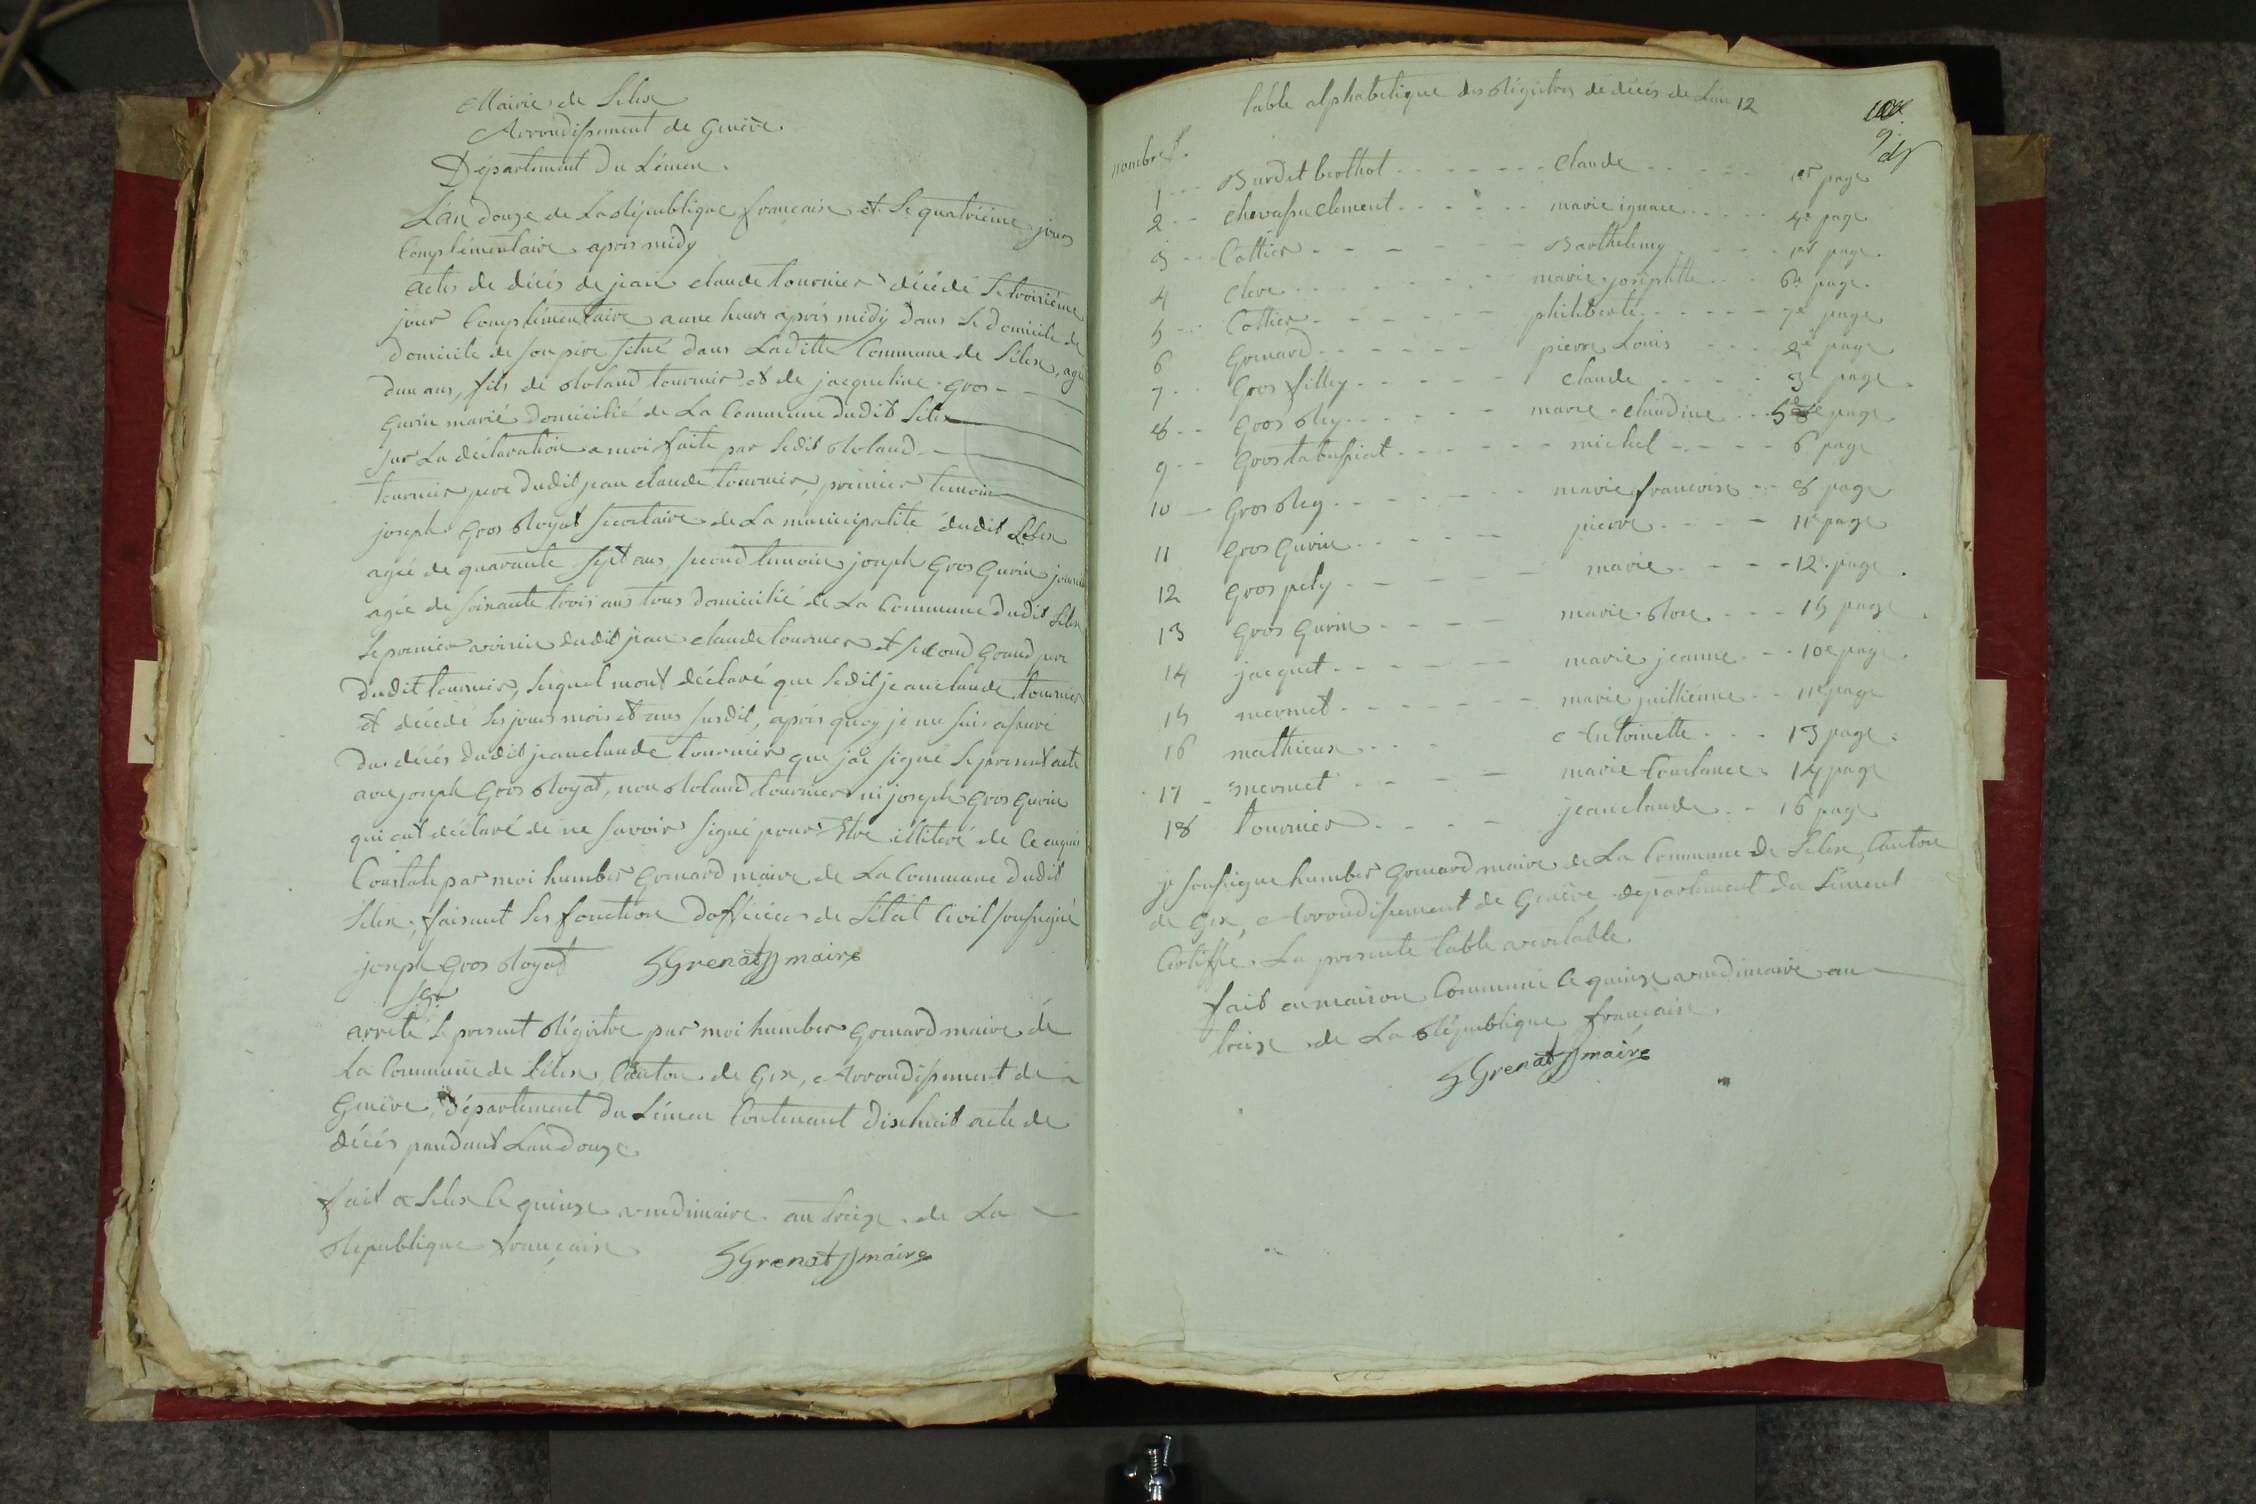 Mairie de Lelex
Arrondissement de Genève
Département du Léman
L'an douze de La République française et Le quatrième jours
Complémentaire après midy
actes de décès de jean claude tournier décédé Le troisième
jour Complémentaire a une heure après midy dans Le domicile de
domicile de son père situé dans Laditte Commune de Lélex, agé
dun ans, fils de Roland tournier et de jacqueline gros
Gurin marié domicilié de La Commune dudit Lelex
sur La déclaration a moi faite par Ledit Roland
tournier pere dudit jean claude tournier, premier temoin
joseph Gros Royat secretaire de La municipalité dudit Lélex
agée de quarante sept ans, second temoin joseph Gros Gurin
agée de soixante trois ans tous domicilié de La Commune dudit Lelex
Le premier voisin dudit jean claude tournier et second Grand pere
dudit tournier, lesquel mont déclaré que Ledit jean claude tournier
et décédé Les jours mois et ans susdit, après quoy je me suis assuré
du décès dudit jean claude tournier que jai signé Le present acte
avec joseph Gros Royat, non Roland tournier ni joseph Gros Gurin
qui ont déclaré de ne savoir signé pour être illiteré de Ce enquis
Constaté par moi humber Gonard maire de La Commune dudit
Lélex, faisant Les fonction dofficier de Létat Civil soussigné
joseph Gros Royat HGrenard maire
Ser
arreté Le present Régistre par moi humber Gonard maire de
La Commune de Lélex, Canton de Gex, Arrondissement de
Genève, département du Léman Contenant dix huit acte de
décès pendant Lan douze
fait a Lelex Le quinze vendimiaire an treize de La
République française HGrenard maire
table alphabetique des Régistres de décès de L'an 12
nombres
1 Burdet berthot claude 1er page
2 Chevassu Clement marie ignace 4e page
3 Cottier Barthelemy 1er page
4 Cleve marie josephtte 6e page
5 Cottier philiberte 7e page
6 Gonard pierre Louis 2e page
7 Gros filley claude 3e page
8 Gros Rey marie claudine 5e page
9 Gros tabussiat michel 6 page
10 Gros Rey marie francoise 8 page
11 Gros Gurin pierre 11e page
12 Gros pely marie 12 page
13 Gros Gurin marie Rose 15 page
14 jacquet marie jeanne 10e page
15 mermet marie juilliénne 11e page
16 mathieux Antoinette 13 page
17 mermet marie Constance 14 page
18 tournier jean claude 16 page
je soussigne humber Gonard maire de La Commune de Lelex, Canton
de Gex, Arrondissement de Genève departement du Lément
Certiffie La presente table veritable
fait en maison Commune Le quinze vendimiaire an
treize de La République française
HGrenard maire